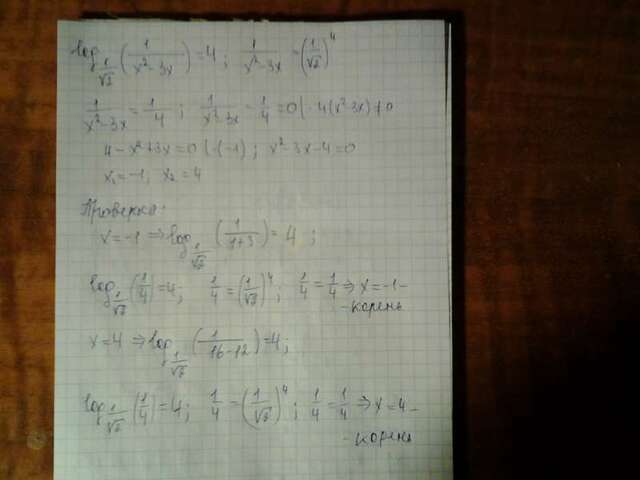 log_{1/√2} (1/(x²-3x)) = 4 ; 1/(x²-3x) = (1/√2)⁴
1/(x²-3x) = 1/4 ; 1/(x²-3x) - 1/4 = 0 | · 4(x²-3x) ≠ 0
4 - x² + 3x = 0 | · (-1) ; x² - 3x - 4 = 0
x₁ = -1, x₂ = 4
Проверка:
x = -1 ⇒ log_{1/√2} (1/(1+3)) = 4 ;
log_{1/√2} (1/4) = 4 ; 1/4 = (1/√2)⁴ ; 1/4 = 1/4 ⇒ x = -1 -
- корень
x = 4 ⇒ log_{1/√2} (1/(16-12)) = 4 ;
log_{1/√2} (1/4) = 4 ; 1/4 = (1/√2)⁴ ; 1/4 = 1/4 ⇒ x = 4 -
- корень